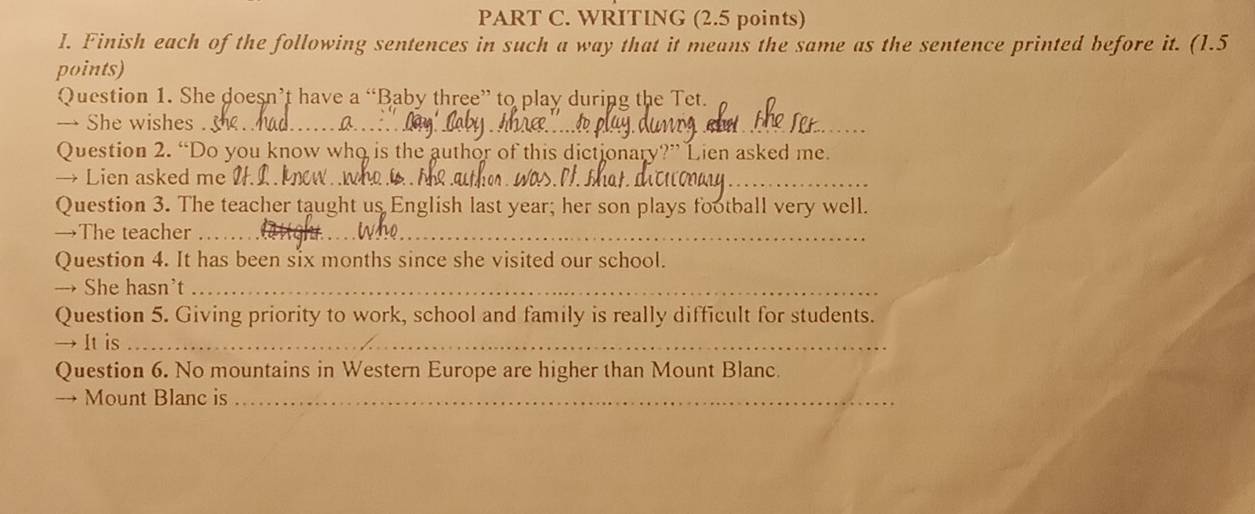 PART C. WRITING (2.5 points)
I. Finish each of the following sentences in such a way that it means the same as the sentence printed before it. (1.5
points)
Question 1. She doesn't have a “Baby three” to play during the Tet.
→ She wishes she had a “ baby three” to play during the Tet
Question 2. “Do you know who is the author of this dictionary?” Lien asked me.
→ Lien asked me if I knew who the author was of that dictionary
Question 3. The teacher taught us English last year; her son plays football very well.
→The teacher who
Question 4. It has been six months since she visited our school.
→ She hasn't
Question 5. Giving priority to work, school and family is really difficult for students.
→ It is
Question 6. No mountains in Western Europe are higher than Mount Blanc.
→ Mount Blanc is